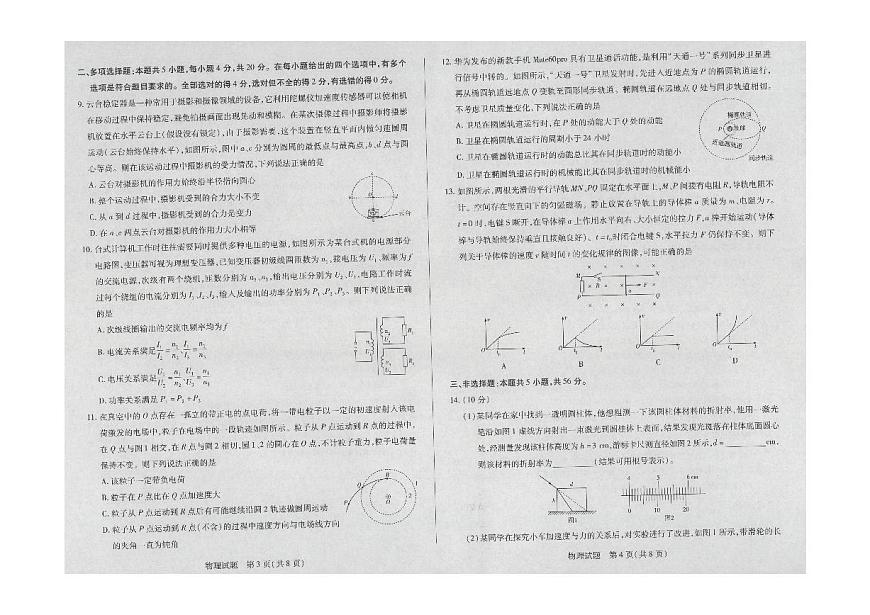 二、多项选择题:本题共 5 小题,每小题 4 分,共 20 分。在每小题给出的四个选项中,有多个
选项是符合题目要求的。全部选对的得 4 分,选对但不全的得 2 分,有选错的得 0 分。
9. 云台稳定器是一种常用于摄影和摄像领域的设备,它利用陀螺仪加速度传感器可以使相机
在移动过程中保持稳定,避免拍摄画面出现晃动和模糊。在某次摄像过程中摄影师将摄影
机放置在水平云台上(假设没有锁定),由于摄影需要,这个装置在竖直平面内做匀速圆周
运动(云台始终保持水平),如图所示,图中 a、c 分别为圆周的最低点与最高点,b、d 点与圆
心等高。则在该运动过程中摄影机的受力情况,下列说法正确的是
A. 云台对摄影机的作用力始终沿半径指向圆心
B. 整个运动过程中,摄影机受到的合力大小不变
C. 从 a 到 d 过程中,摄影机受到的合力是变力
D. 在 a、c 两点云台对摄影机的作用力大小相等
云台
10. 台式计算机工作时往往需要同时提供多种电压的电源,如图所示为某台式机的电源部分
电路图,变压器可视为理想变压器,已知变压器初级线圈匝数为 n₁,接电压为 U₁、频率为 f
的交流电源,次级有两个绕组,匝数分别为 n₂、n₃,输出电压分别为 U₂、U₃,电路工作时流
过每个绕组的电流分别为 I₁、I₂、I₃,输入及输出的功率分别为 P₁、P₂、P₃。则下列说法正确
的是
A. 次级线圈输出的交流电频率均为 f
B. 电流关系满足
C. 电压关系满足
D. 功率关系满足 P₁=P₂+P₃
11. 在真空中的 O 点存在一孤立的带正电的点电荷,将一带电粒子以一定的初速度射入该电
荷激发的电场中,粒子在电场中的一段轨迹如图所示。粒子从 P 点运动到 R 点的过程中,
在 Q 点与圆 1 相交,在 R 点与圆 2 相切,圆 1、2 的圆心在 O 点,不计粒子重力,粒子电荷量
保持不变。则下列说法正确的是
A. 该粒子一定带负电荷
B. 粒子在 P 点比在 Q 点加速度大
C. 粒子从 P 点运动到 R 点后有可能继续沿圆 2 轨迹做圆周运动
D. 粒子从 P 点运动到 R 点(不含)的过程中速度方向与电场线方向
的夹角一直为钝角
物理试题 第 3 页(共 8 页)
12. 华为发布的新款手机 Mate60pro 具有卫星通话功能,是利用“天通一号”系列同步卫星进
行信号中转的。如图所示,“天通一号”卫星发射时,先进入近地点为 P 的椭圆轨道运行,
再从椭圆轨道远地点 Q 变轨至圆形同步轨道。椭圆轨道在远地点 Q 处与同步轨道相切。
不考虑卫星质量变化,下列说法正确的是
A. 卫星在椭圆轨道运行时,在 P 处的动能大于 Q 处的动能
B. 卫星在椭圆轨道运行的周期小于 24 小时
C. 卫星在椭圆轨道运行时的动能总比其在同步轨道时的动能小
D. 卫星在椭圆轨道运行时的机械能比其在同步轨道时的机械能小
椭圆轨道
P 地球 Q
近地圆轨道
同步轨道
13. 如图所示,两根光滑的平行导轨 MN、PQ 固定在水平面上,M、P 间接有电阻 R,导轨电阻不
计。空间存在竖直向下的匀强磁场。静止放置在导轨上的导体棒 a 质量为 m、电阻为 r。
t=0 时,电键 S 断开,在导体棒 a 上作用水平向右、大小恒定的拉力 F,a 棒开始运动(导体
棒与导轨始终保持垂直且接触良好)、t=t₁时闭合电键 S,水平拉力 F 仍保持不变。则下
列关于导体棒的速度 v 随时间 t 的变化规律的图像,可能正确的是
A B C D
三、非选择题:本题共 5 小题,共 56 分。
14. (10 分)
(1)某同学在家中找到一透明圆柱体,他想粗测一下该圆柱体材料的折射率,使用一激光
笔沿如图 1 虚线方向射出一束激光到圆柱体上表面,结果发现光斑落在柱体底面圆心
处,经测量发现该柱体高度为 h=3 cm,游标卡尺测直径如图 2 所示,d=________cm,
则该材料的折射率为________(结果可用根号表示)。
4 5 6 cm
0 10 20
图1 图2
(2)某同学在探究小车加速度与力的关系后,对实验进行了改进,如图 1 所示,带滑轮的长
物理试题 第 4 页(共 8 页)